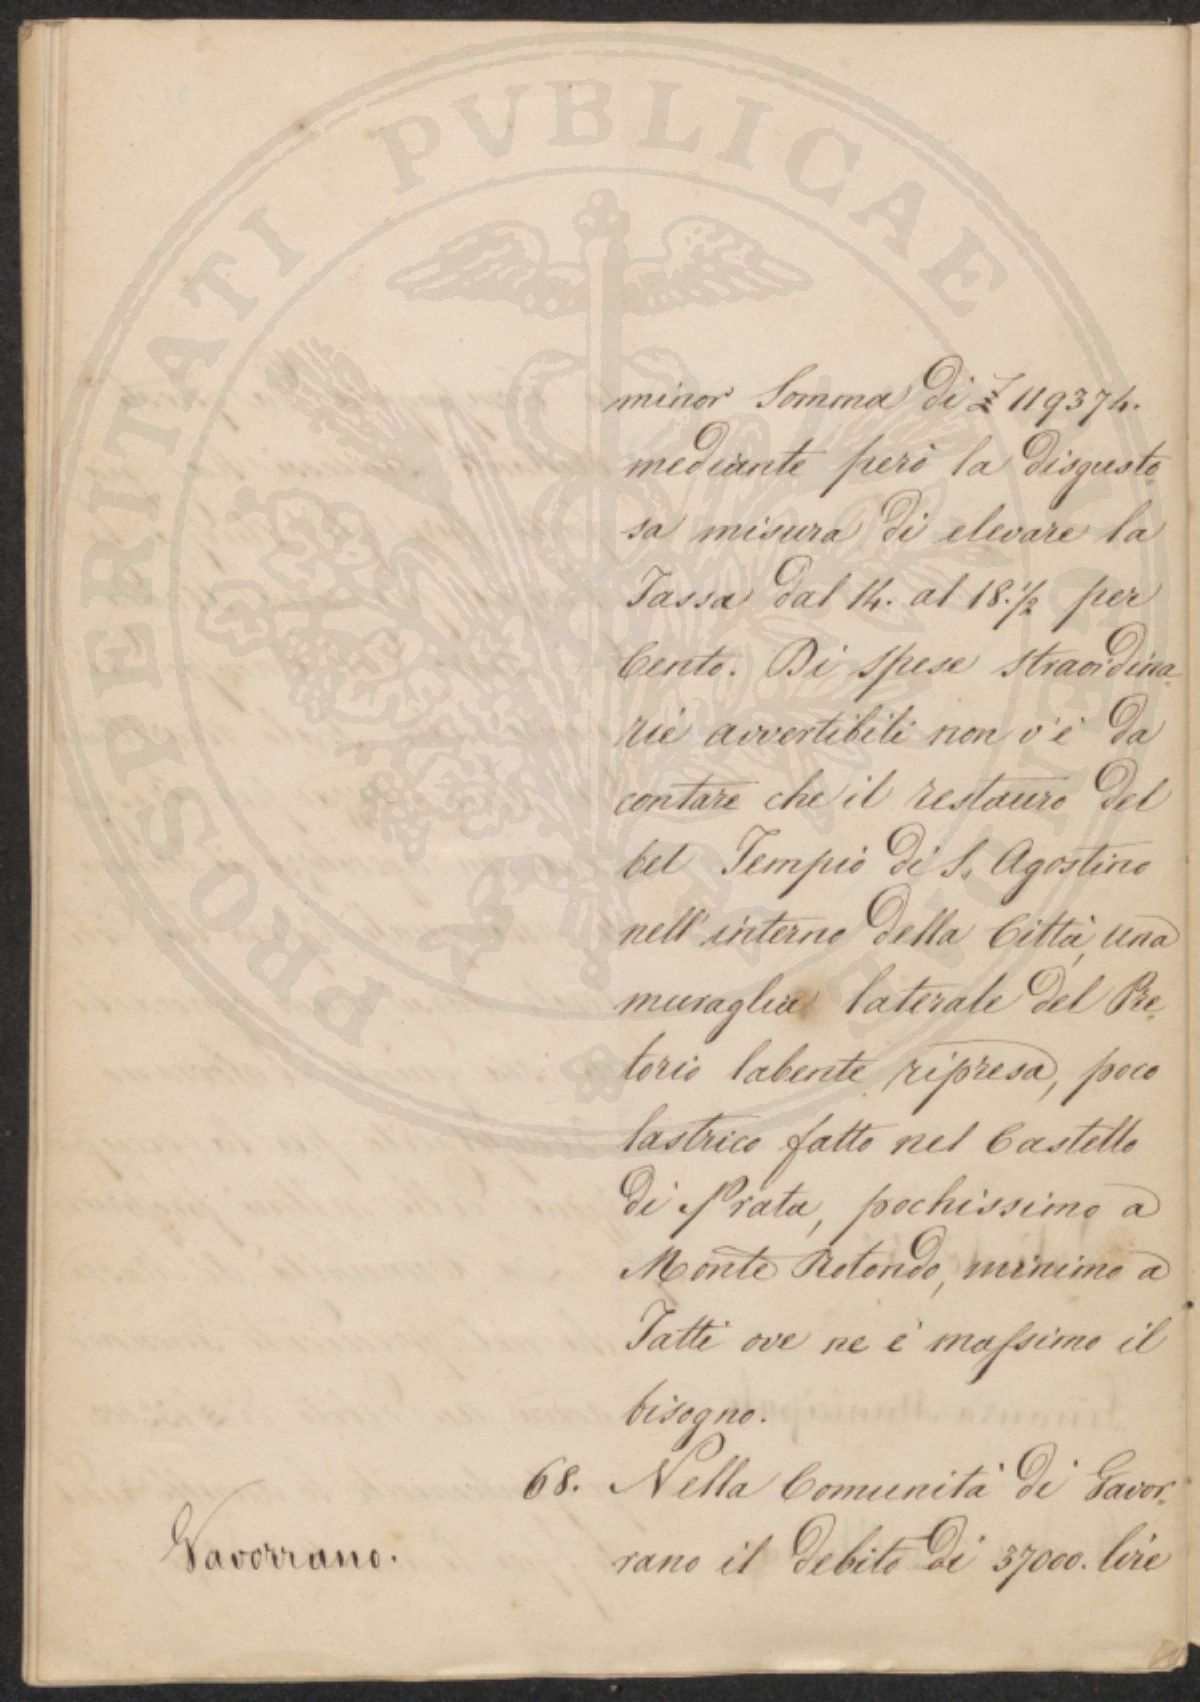 minor Somma di £ 119374.
mediante però la disgusto-
sa misura di elevare la
Tassa dal 14. al 18.½ per
Cento. Di spese straordina-
rie avvertibili non v'è da
contare che il restauro del
bel Tempio di S. Agostino
nell'interno della Città, una
muraglia laterale del Pre-
torio labente ripresa, poco
lastrico fatto nel Castello
di Prata, pochissimo a
Monte Rotondo, minimo a
Tatti ove ne è massimo il
bisogno.
68. Nella Comunità di Gavor-
Gavorrano.
rano il debito di 37000. lire
PROSPERITATI PVBLICAE